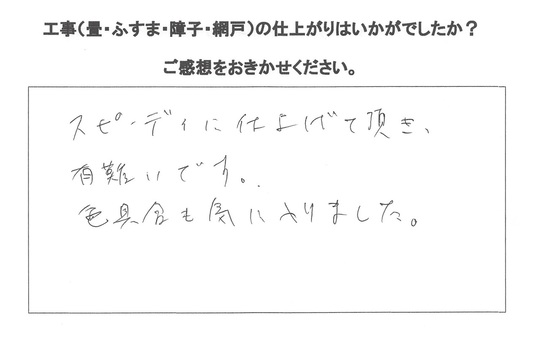 工事(畳・ふすま・障子・網戸)の仕上がりはいかがでしたか?
ご感想をおきかせください。
スピーディに仕上げて頂き、
有難いです。
色具合も気に入りました。